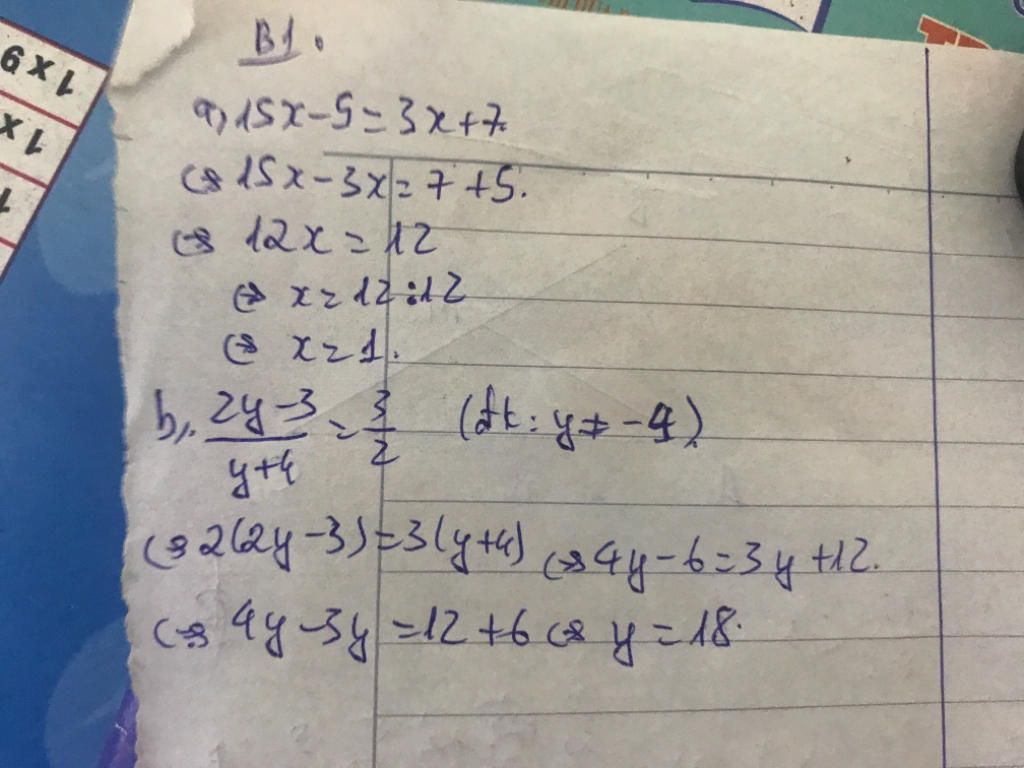 B1.
a, 15x-5=3x+7.
⇔ 15x-3x=7+5.
⇔ 12x=12
⇔ x=12:12
⇔ x=1.
b, (2y-3)/(y+4) = 3/2 (đk: y≠-4)
⇔ 2(2y-3)=3(y+4) ⇔ 4y-6=3y+12.
⇔ 4y-3y=12+6 ⇔ y=18.
1x9
1x
1